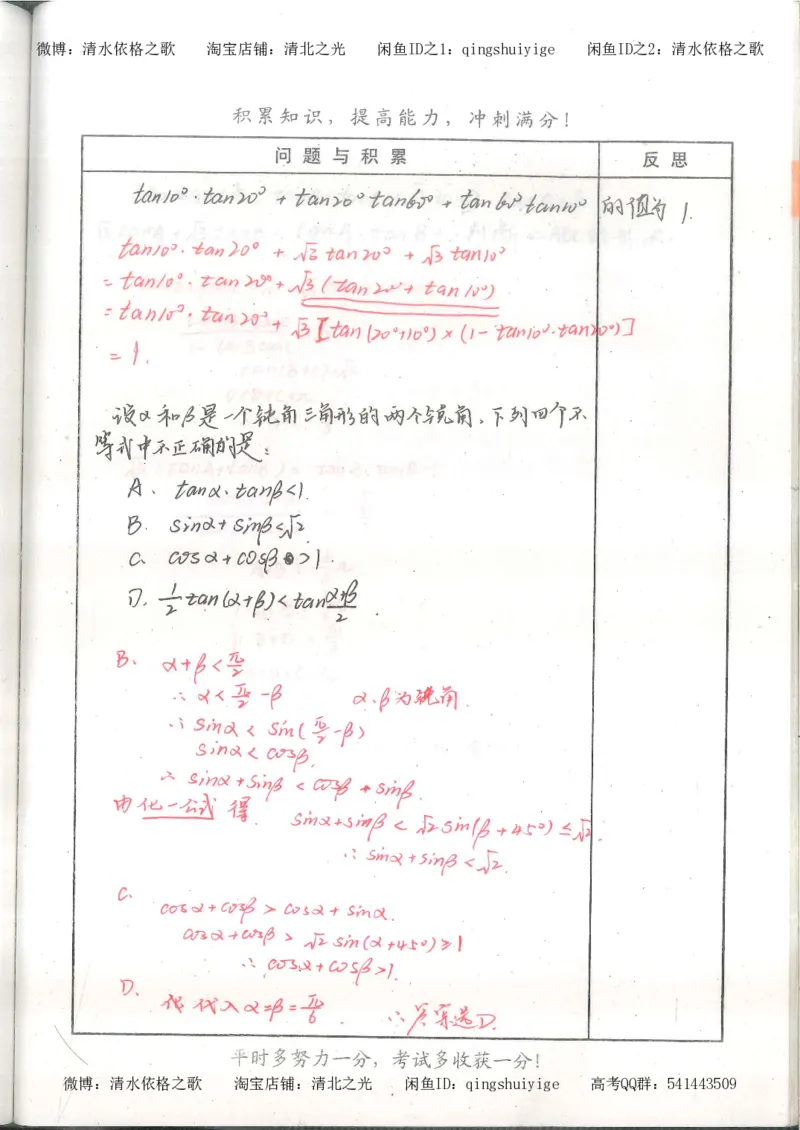 微博：清水依格之歌 淘宝店铺：清北之光 闲鱼ID之1：qingshuiyige 闲鱼ID之2：清水依格之歌
积累知识，提高能力，冲刺满分！
问题与积累 反思
tan10°·tan20° + tan20°tan60° + tan60°tan10° 的值为 1.
tan10°·tan20° + √3 tan20° + √3 tan10°
= tan10°·tan20° + √3 (tan20° + tan10°)
= tan10°·tan20° + √3 [tan(20°+10°) × (1 - tan10°·tan20°)]
= 1.
设α和β是一个钝角三角形的两个锐角，下列四个不
等式中不正确的是：
A. tanα·tanβ<1.
B. sinα+sinβ<√2
C. cosα+cosβ>1.
D. 1/2 tan(α+β)<tan (α+β)/2.
B. α+β<π/2
∴ α<π/2-β α、β为锐角.
∴ sinα< sin(π/2-β)
sinα< cosβ.
∴ sinα+sinβ < cosβ+sinβ.
由化一公式得. sinα+sinβ < √2 sin(β+45°) ≤√2.
∴ sinα+sinβ<√2.
C.
cosα+cosβ > cosα+sinα.
cosα+cosβ > √2 sin(α+45°)≥1
∴ cosα+cosβ>1.
D. 代入α=β=π/6. ∴ 答案选D.
平时多努力一分，考试多收获一分！
微博：清水依格之歌 淘宝店铺：清北之光 闲鱼ID：qingshuiyige 高考QQ群：541443509